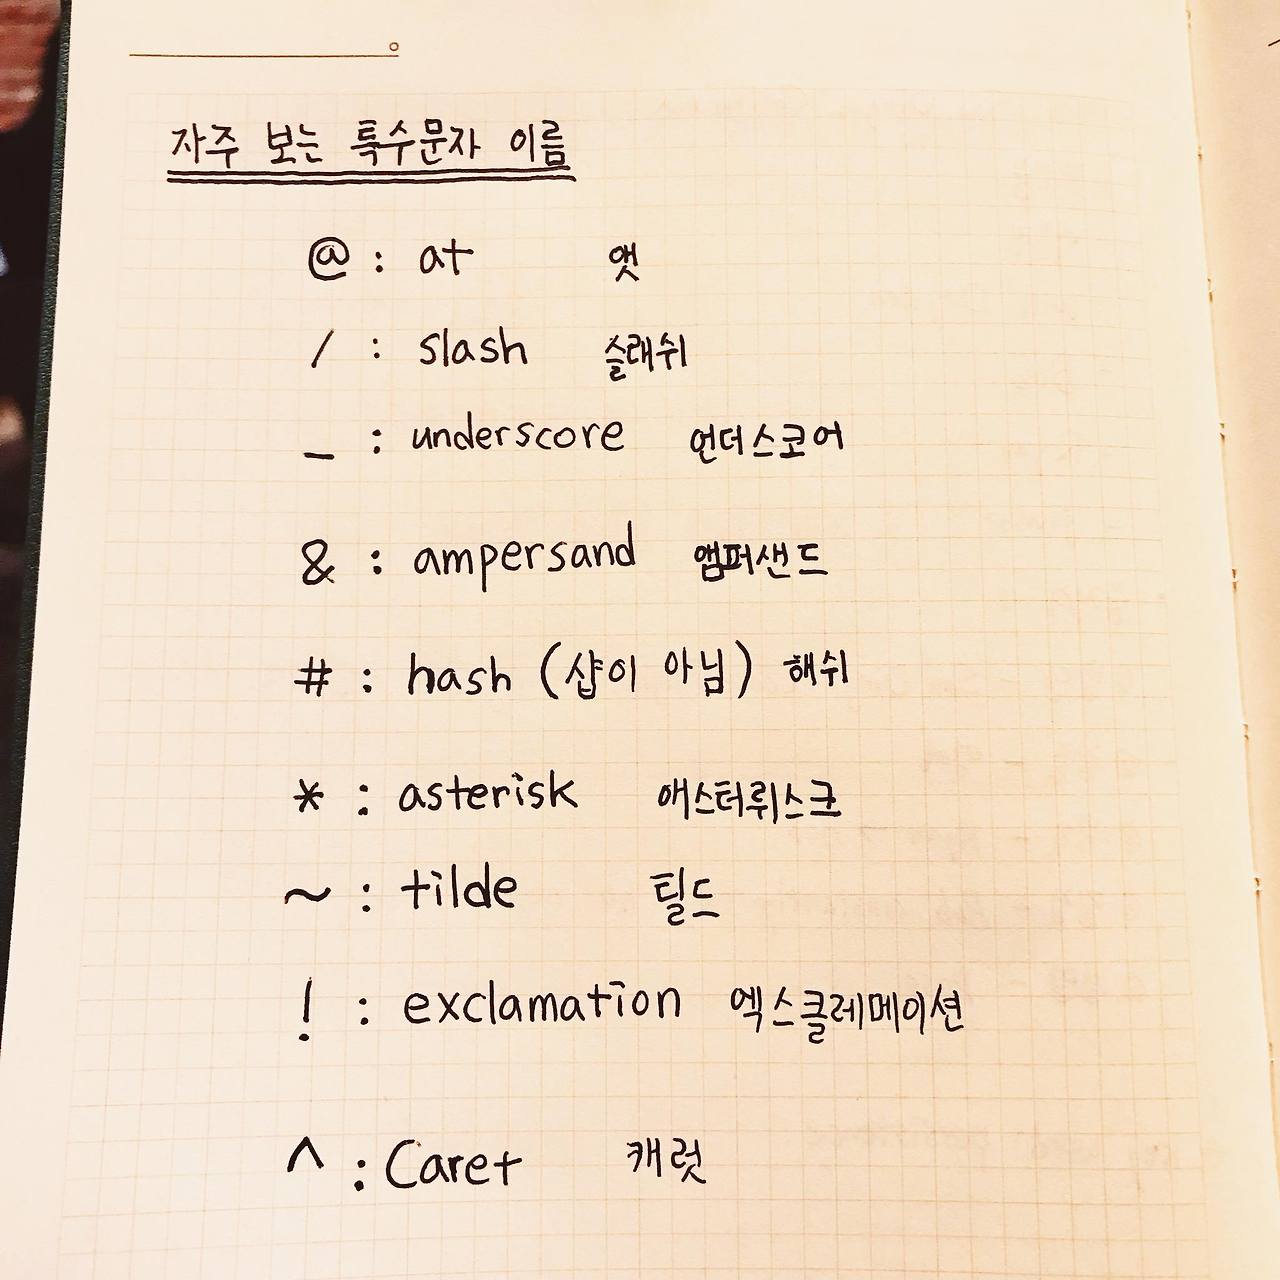 자주 보는 특수문자 이름
@ : at 앳
/ : slash 슬래쉬
_ : underscore 언더스코어
& : ampersand 앰퍼샌드
# : hash (샵이 아님) 해쉬
* : asterisk 애스터뤼스크
~ : tilde 틸드
! : exclamation 엑스클레메이션
^ : Caret 캐럿